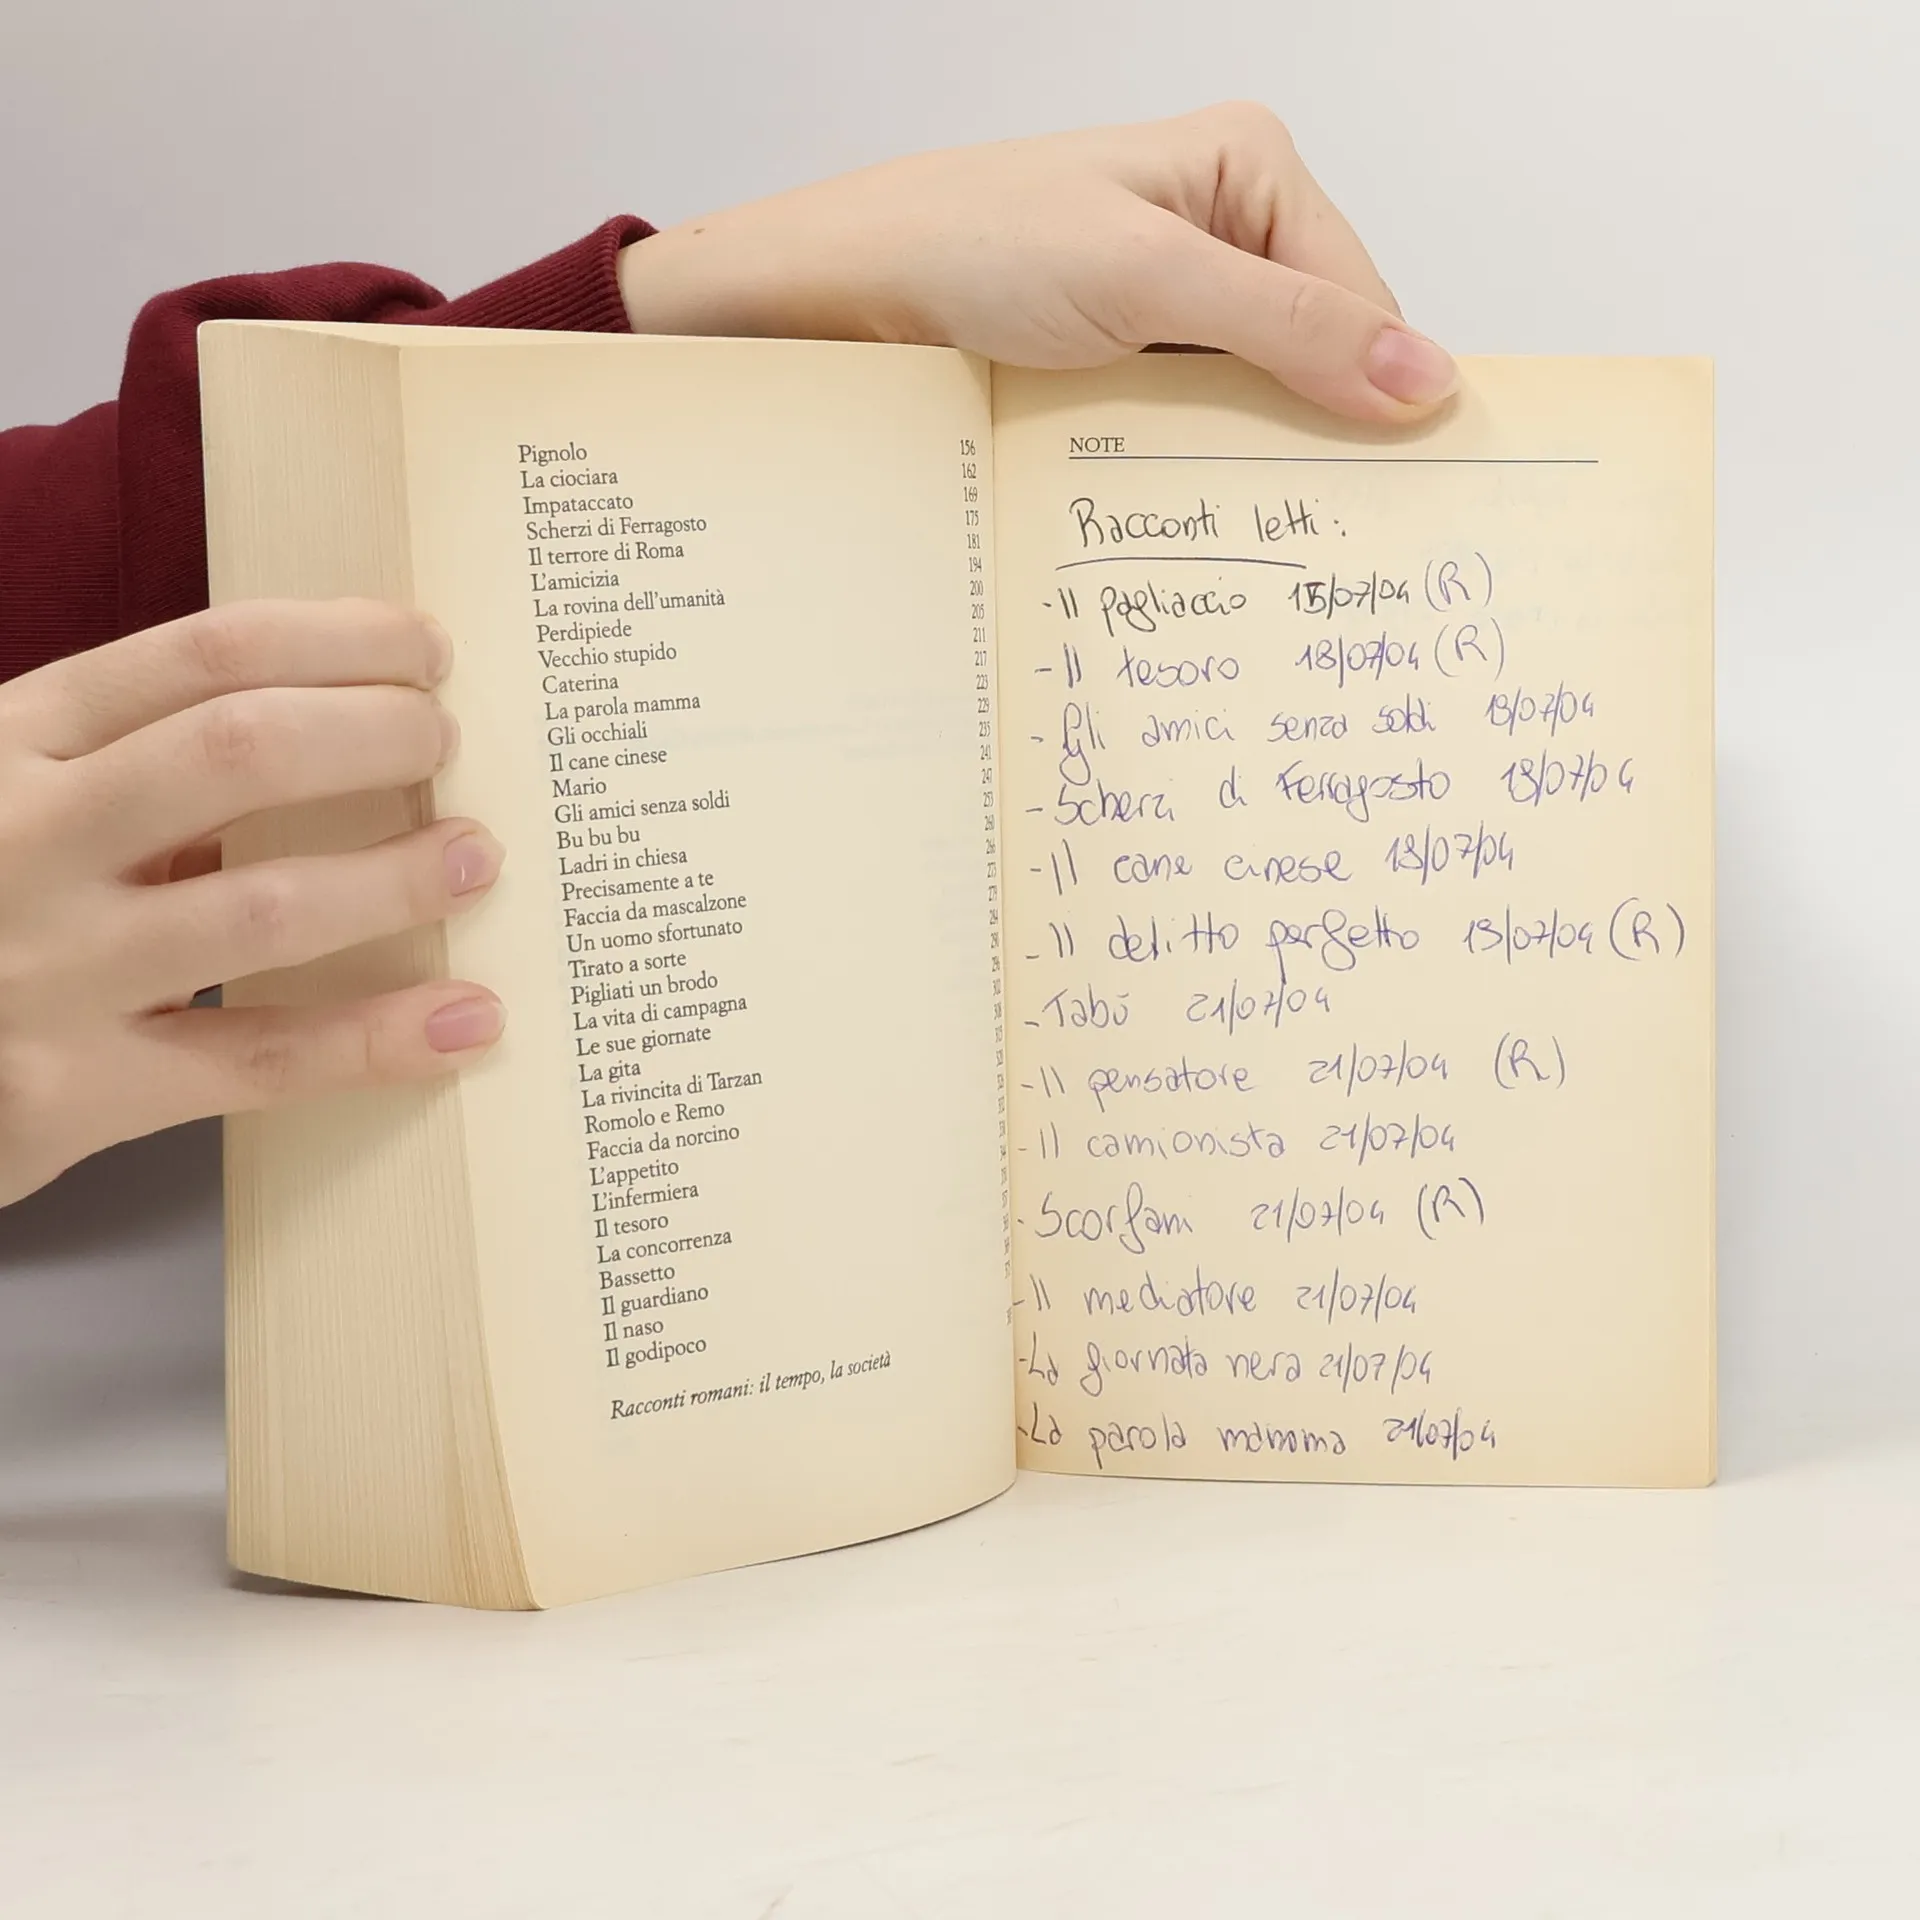 Pignolo 156
La ciociara 162
Impataccato 169
Scherzi di Ferragosto 175
Il terrore di Roma 181
L'amicizia 194
La rovina dell'umanità 200
Perdipiede 205
Vecchio stupido 211
Caterina 217
La parola mamma 223
Gli occhiali 229
Il cane cinese 235
Mario 241
Gli amici senza soldi 247
Bu bu bu 253
Ladri in chiesa 260
Precisamente a te 266
Faccia da mascalzone 273
Un uomo sfortunato 279
Tirato a sorte 284
Pigliati un brodo 290
La vita di campagna 296
Le sue giornate 302
La gita 308
La rivincita di Tarzan
Romolo e Remo
Faccia da norcino
L'appetito
L'infermiera
Il tesoro
La concorrenza
Bassetto
Il guardiano
Il naso
Il godipoco
Racconti romani: il tempo, la società
NOTE
Racconti letti:
- Il pagliaccio 15/07/04 (R)
- Il tesoro 18/07/04 (R)
- Gli amici senza soldi 19/07/04
- Scherzi di Ferragosto 19/07/04
- Il cane cinese 19/07/04
- Il delitto perfetto 19/07/04 (R)
- Tabù 21/07/04
- Il pensatore 21/07/04 (R)
- Il camionista 21/07/04
- Scorfani 21/07/04 (R)
- Il mediatore 21/07/04
- La giornata nera 21/07/04
- La parola mamma 21/07/04